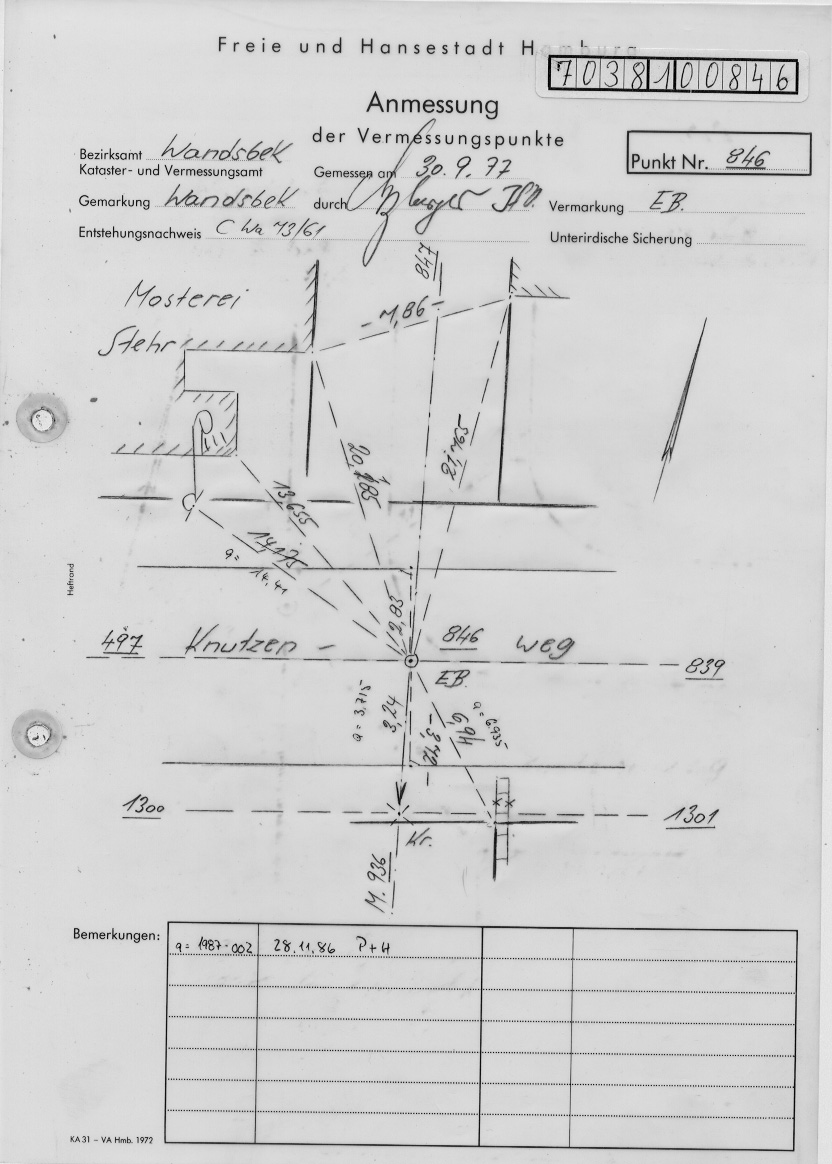 Freie und Hansestadt Hamburg
7038100846
Anmessung
der Vermessungspunkte
Bezirksamt Wandsbek
Kataster- und Vermessungsamt
Gemessen am 30.9.77
Punkt Nr. 846
Gemarkung Wandsbek
durch
Vermarkung EB.
Entstehungsnachweis C Wa 13/61
Unterirdische Sicherung
847
Mosterei
Stehr
- 7,86 -
20,185
21,765
13,655
14,175
a= 14,41
Heftrand
12,85
497
Knutzen - weg
846
839
EB.
a = 3,715
3,24
- 3,42 -
6,94
a = 6,935
1300
1301
Kr.
M. 936
Bemerkungen:
a = 1987-002 28.11.86 P+H
KA 31 – VA Hmb. 1972